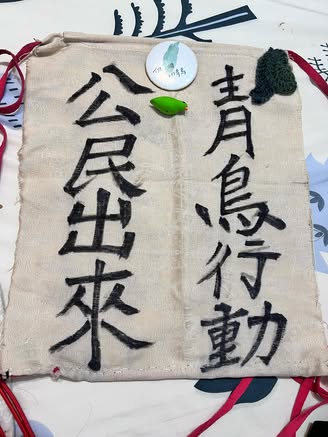 青鳥行動
公民出來